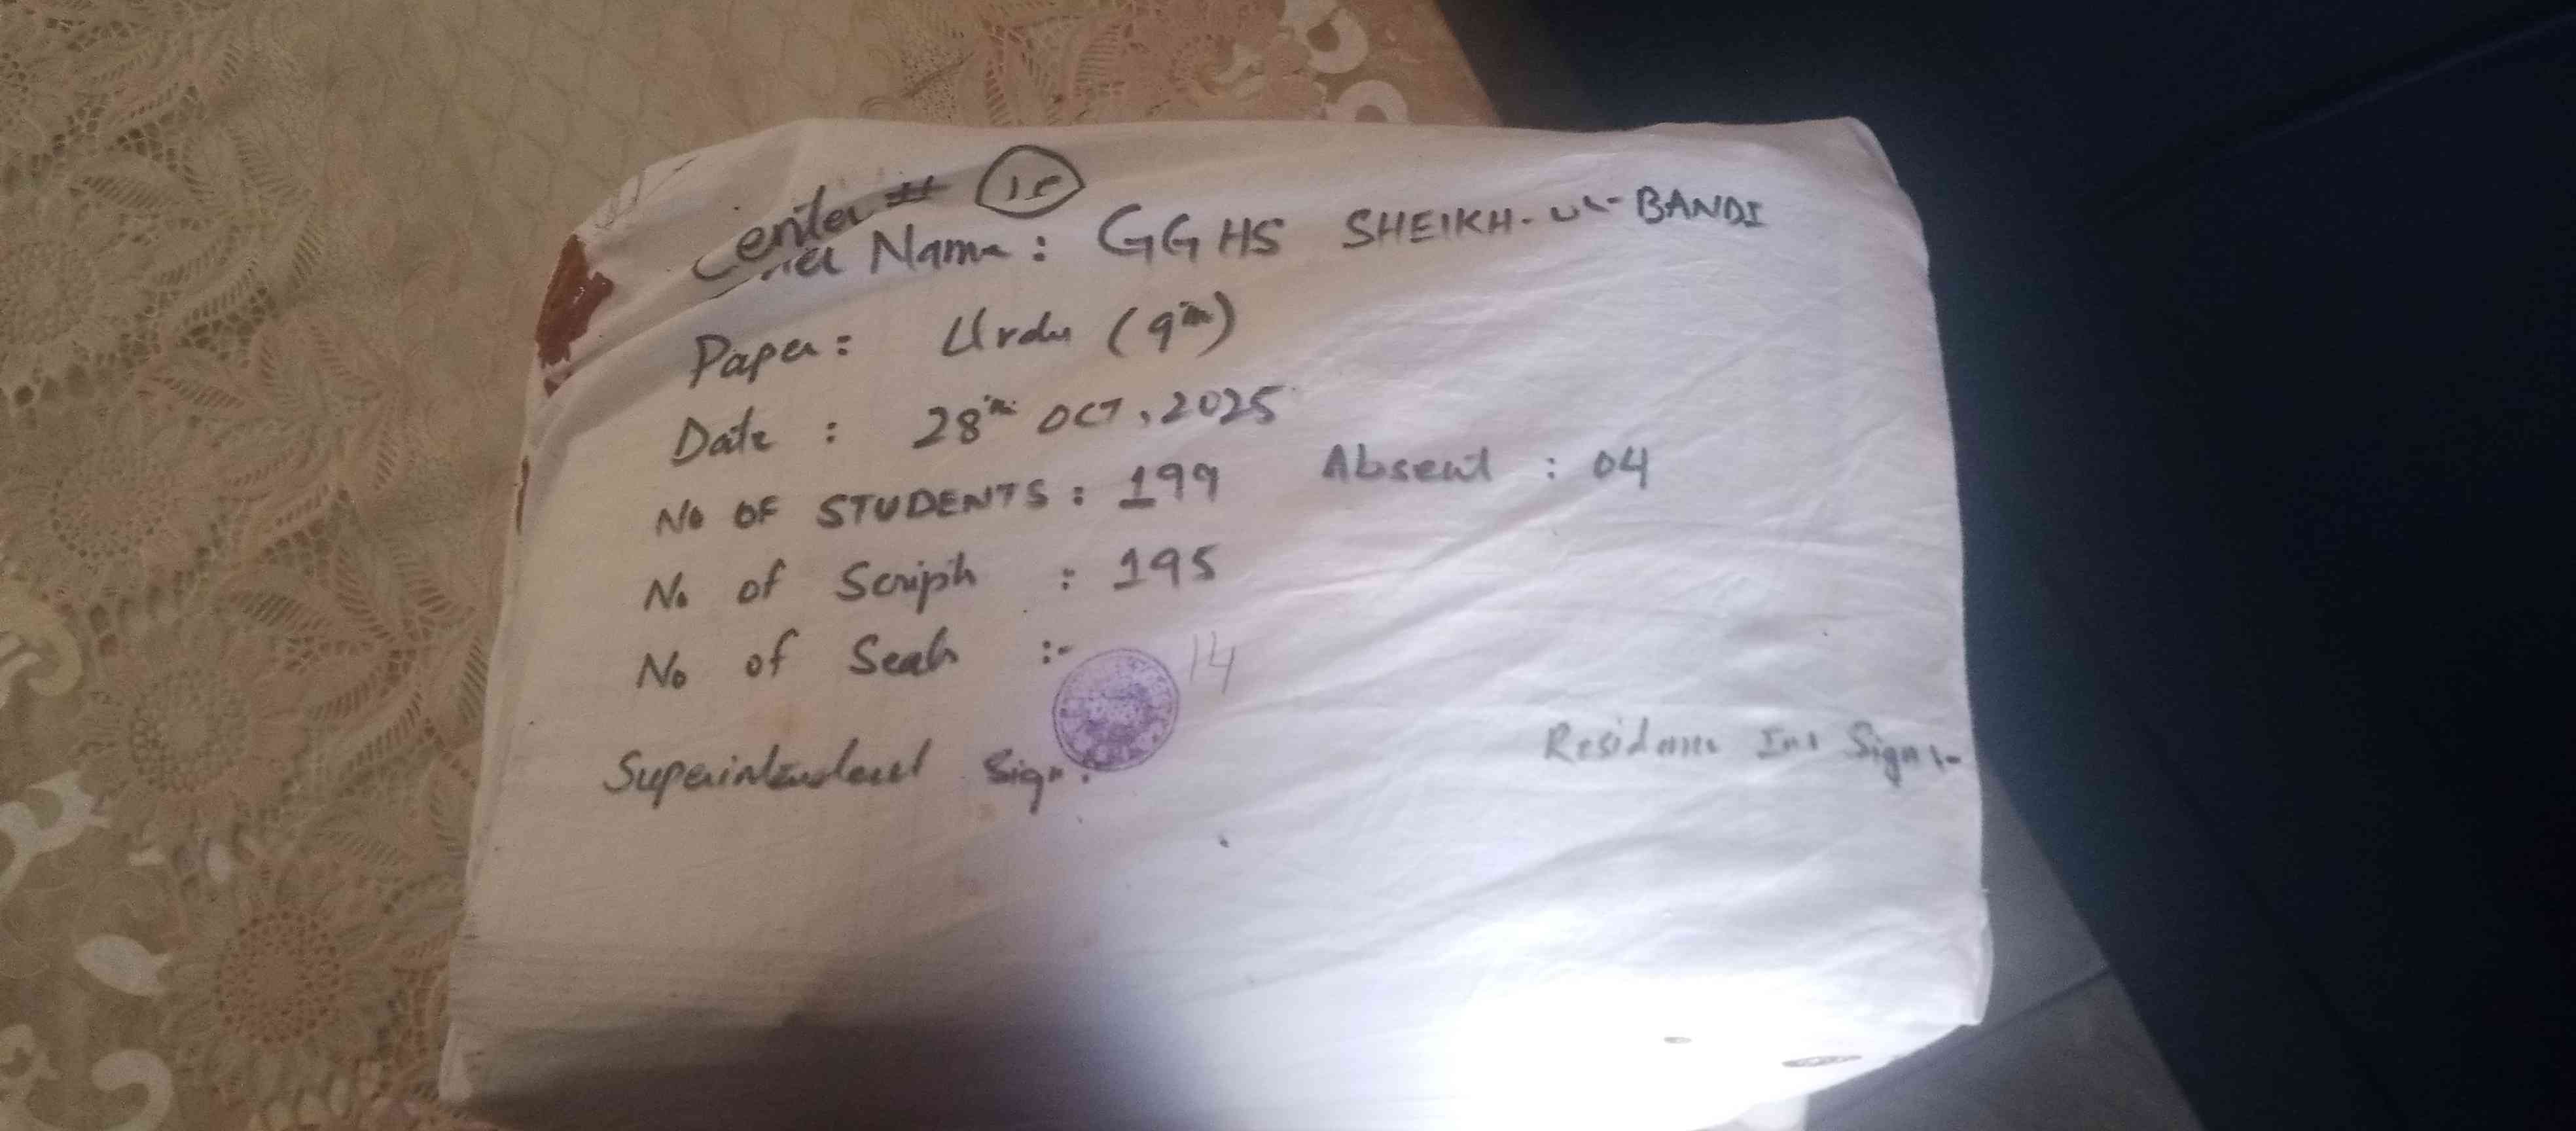 Center # 15
Name : GGHS SHEIKH-UL-BANDI
Paper : Urdu (9th)
Date : 28th OCT, 2025
No OF STUDENTS : 199 Absent : 04
No of Scripts : 195
No of Seals :- 14
Superintendent Sign :
Residence Ins Sign :-